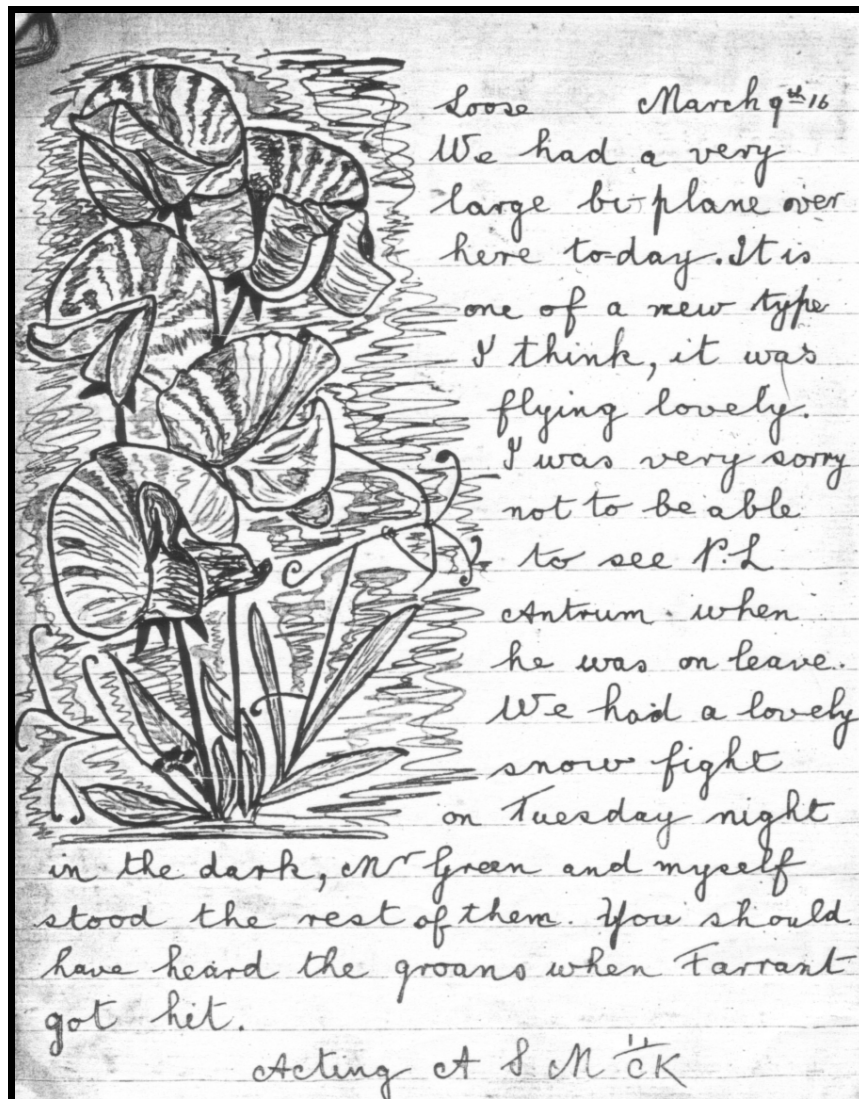 Loose March 9th 16
We had a very
large bi-plane over
here to-day. It is
one of a new type
I think, it was
flying lovely.
I was very sorry
not to be able
to see P. L
Antrum when
he was on leave.
We had a lovely
snow fight
on Tuesday night
in the dark, Mr Green and myself
stood the rest of them. You should
have heard the groans when Farrant
got hit.
Acting A S M